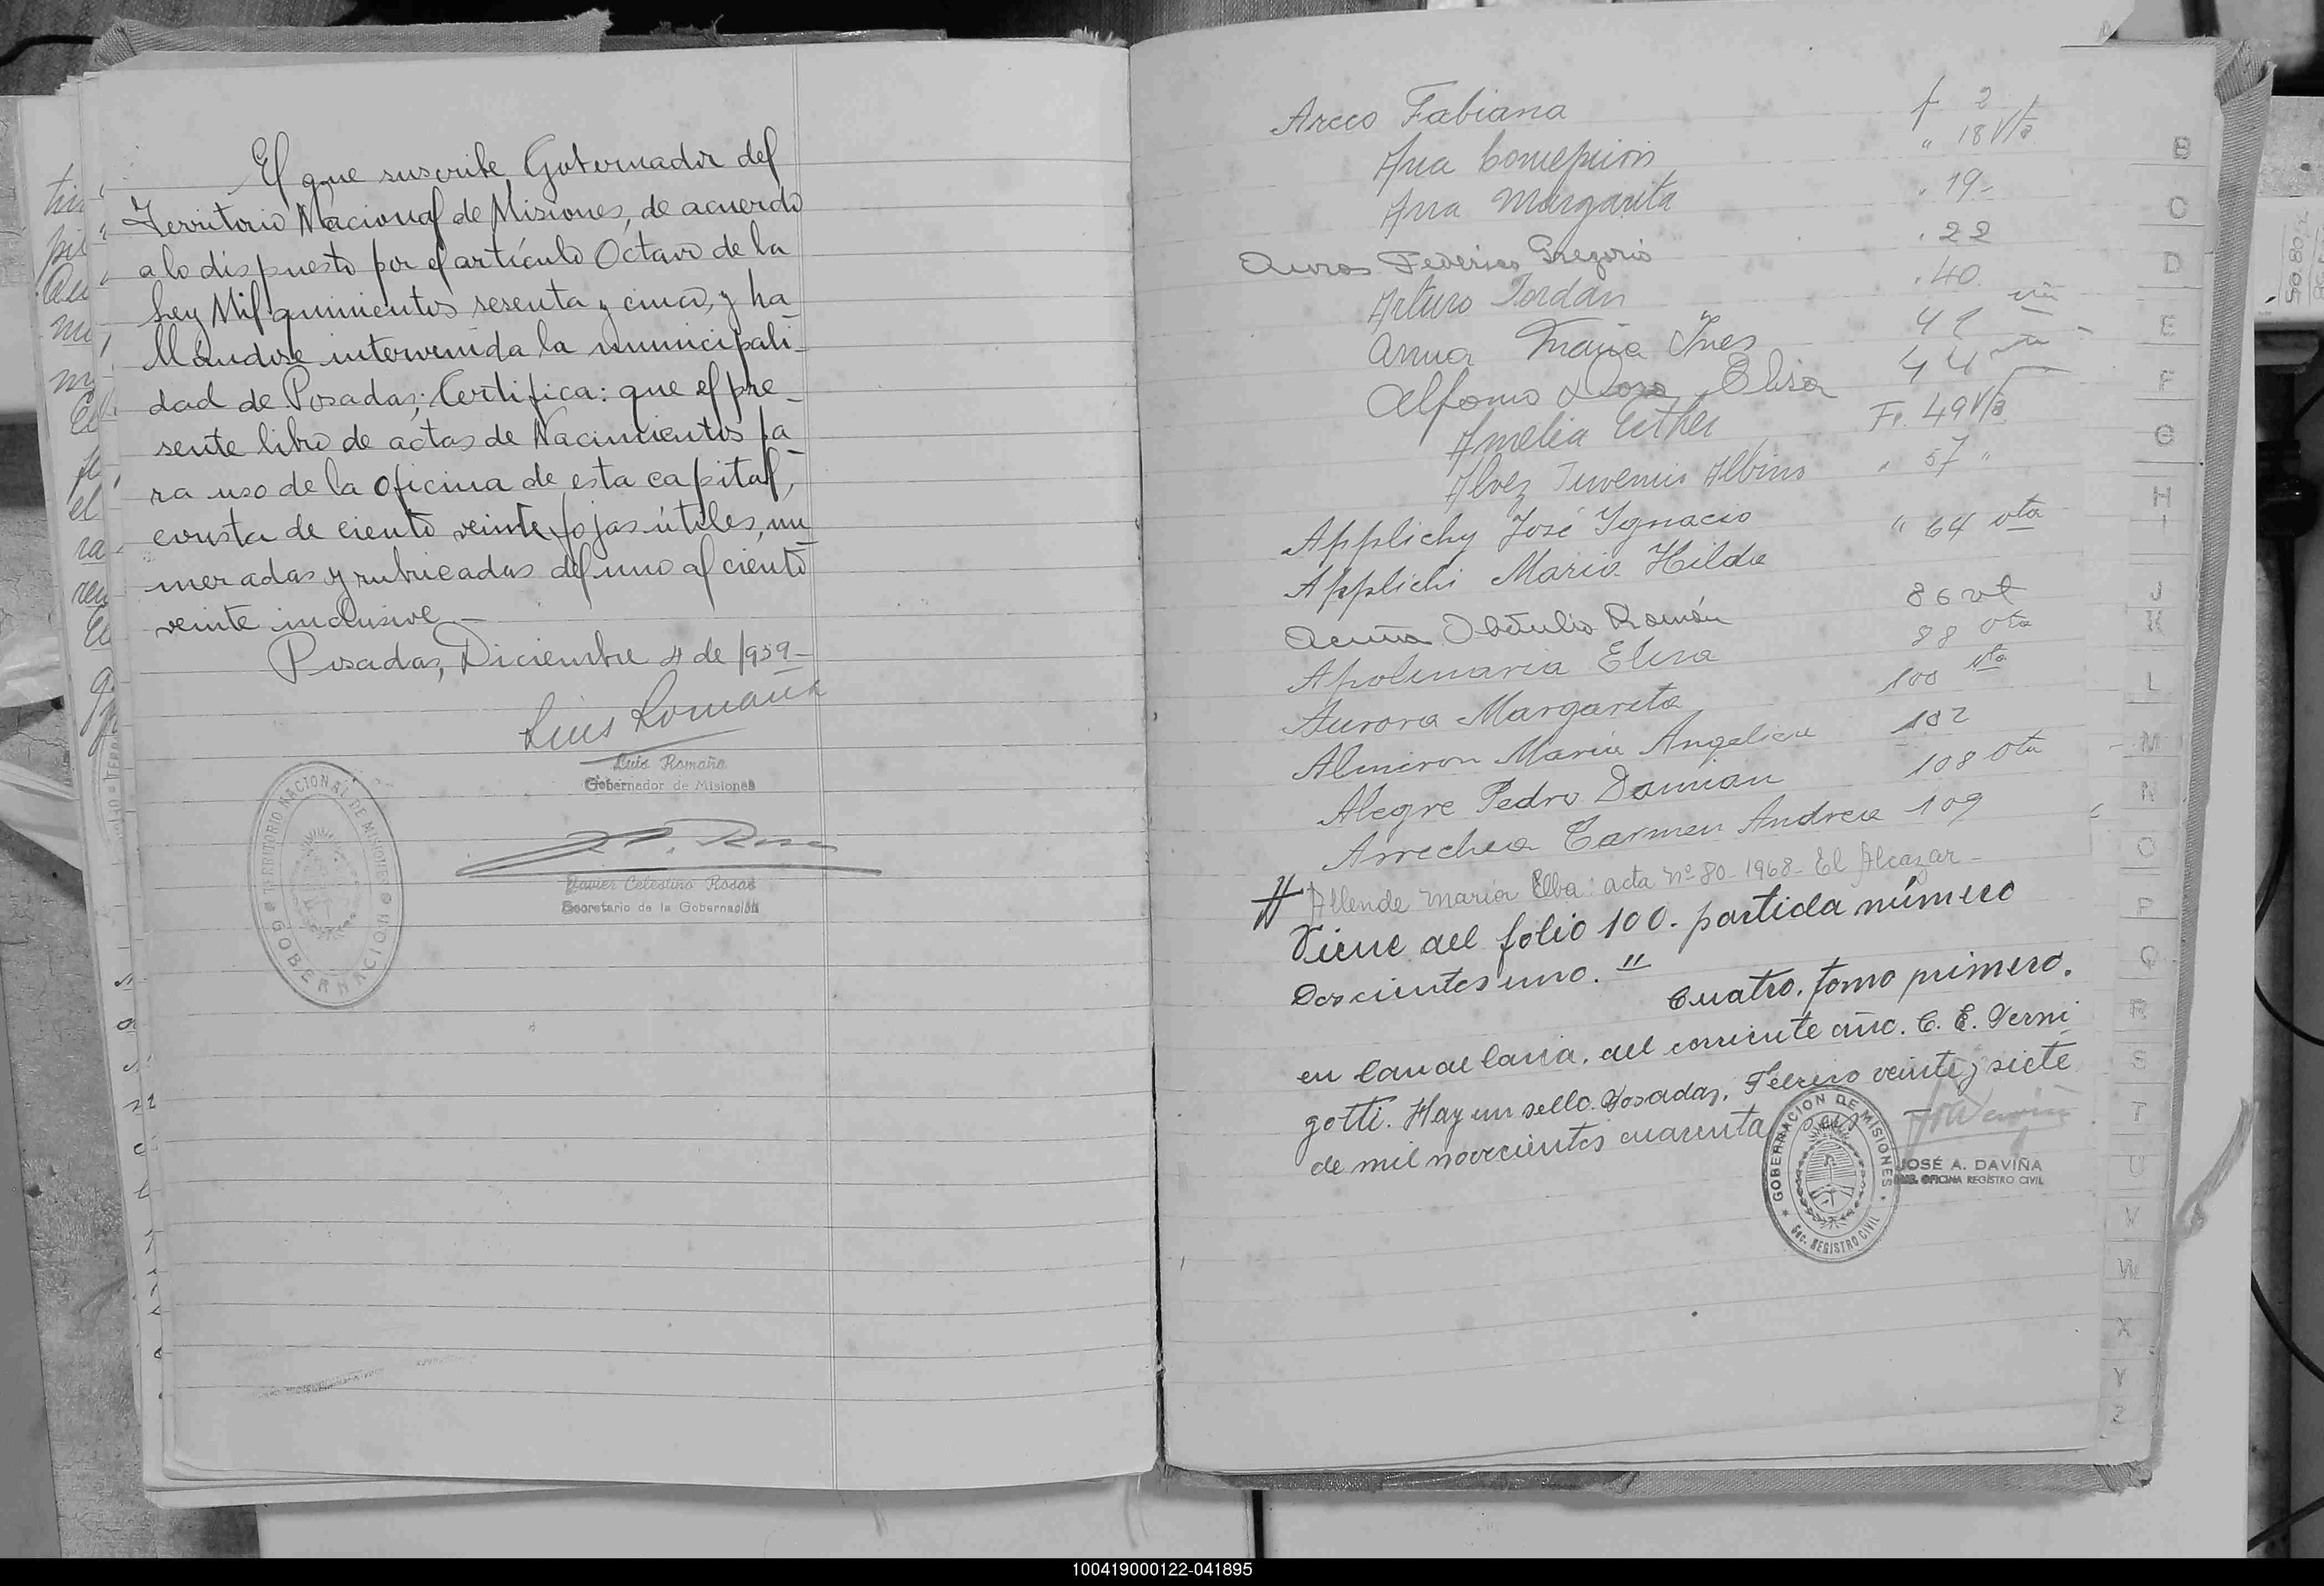 El que suscribe, Gobernador del
Territorio Nacional de Misiones, de acuerdo
a lo dispuesto por el artículo Octavo de la
Ley Mil quinientos sesenta y cinco, y ha
llándose intervenida la municipali-
dad de Posadas; Certifica: que el pre-
sente libro de actas de Nacimientos pa
ra uso de la oficina de esta capital,
consta de ciento veinte fojas útiles, nu
meradas y rubricadas del uno al ciento
veinte inclusive
Posadas, Diciembre 4 de 1939-
Luis Romaña
Luis Romaña
Gobernador de Misiones
Javier Celestino Rosas
Secretario de la Gobernación
TERRITORIO NACIONAL DE MISIONES
GOBERNACION
Arcco Fabiana f 2
Ana Concepcion " 18 Vta
Ana Margarita " 19-
Federico Gregorio . 22
Arturo Jordán . 40
Maria Ines 42
Alfonso Rosa Elisa 44
Amelia Esther Fo. 49 Vta
Alvez Juvencio Albino " 57 "
Applichy José Ignacio " 64 vta
Applichi Maria Hilda
Acuña Obdulio Román 86 vt
Apolinaria Elisa 88 vta
Aurora Margarita 100 vta
Almiron Maria Angelica 102
Alegre Pedro Damian 108 vta
Arrechea Carmen Andrea 109
# Allende María Elba: acta nº 80-1968- El Alcazar-
Viene del folio 100. partida número
Doscientos uno. "
Cuatro, tomo primero.
en Candelaria, del corriente año. C. E. Verni
gotti. Hay un sello. Posadas, Febrero veinte y siete
de mil novecientos cuarenta
GOBERNACION DE MISIONES
Sec. REGISTRO CIVIL
JOSÉ A. DAVIÑA
OFICINA REGISTRO CIVIL
B
C
D
E
F
G
H
I
J
K
L
M
N
O
P
Q
R
S
T
U
V
W
X
Y
Z
100419000122-041895